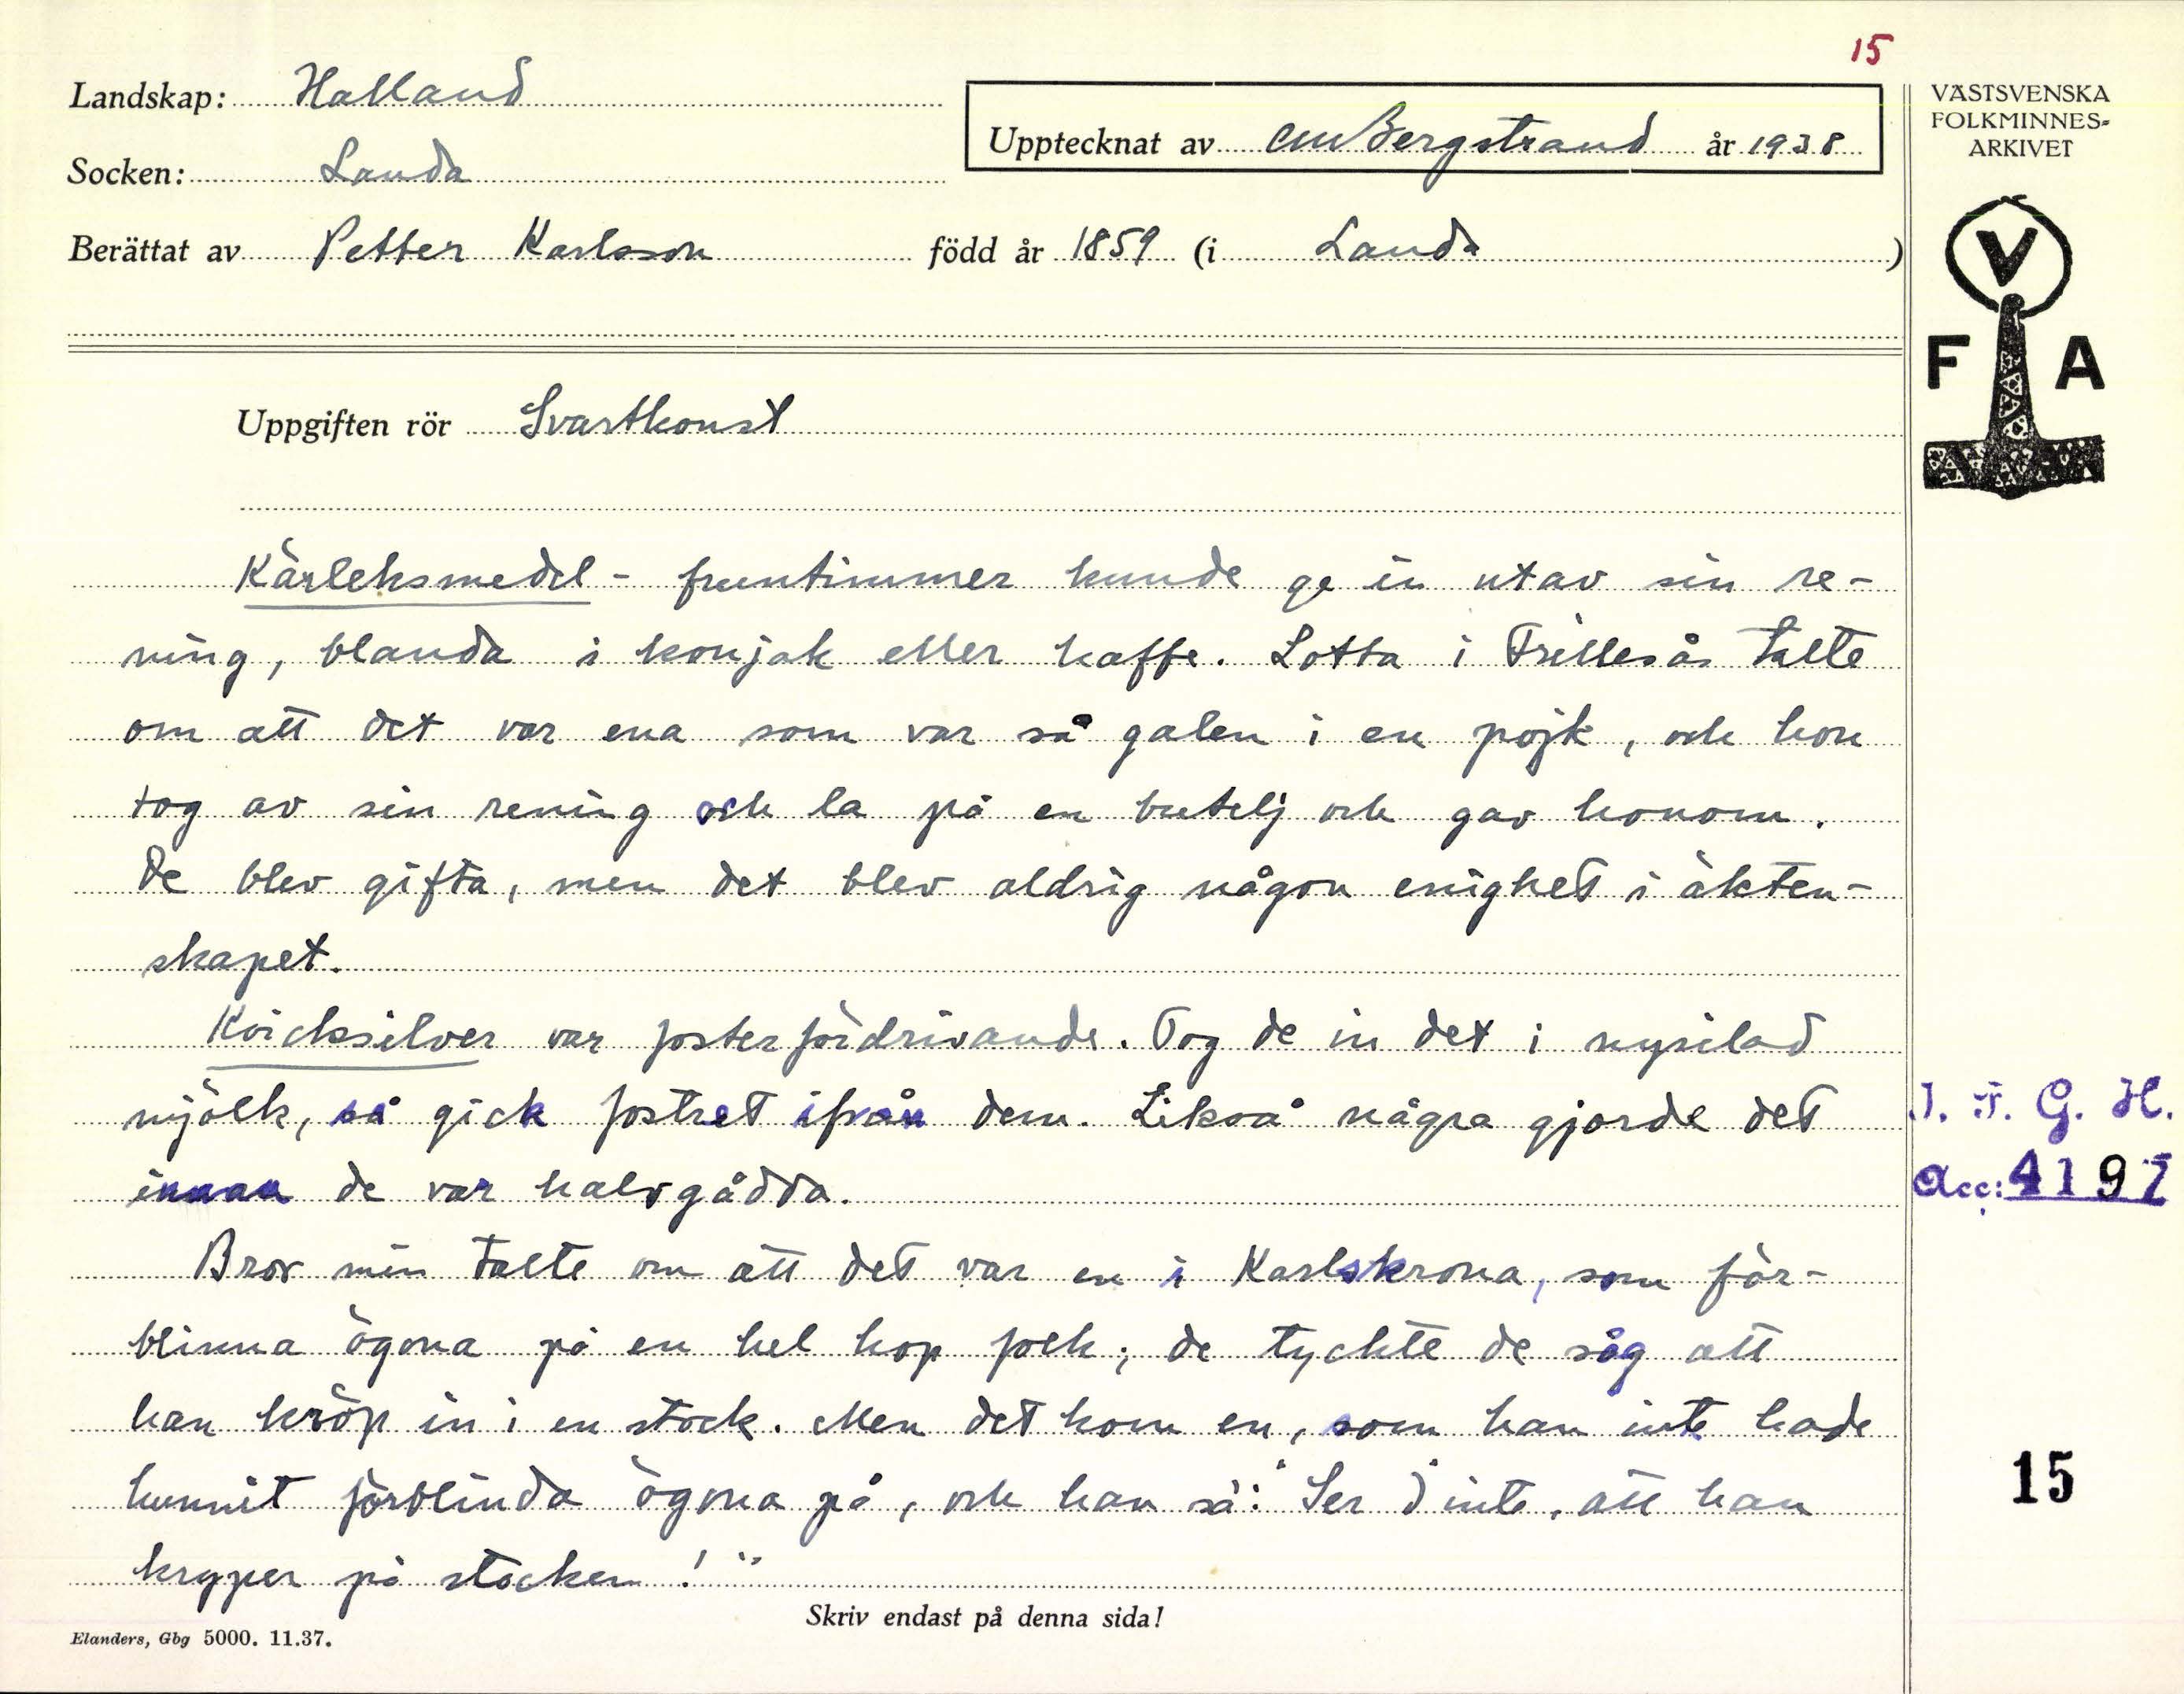 15
Landskap: Halland
Socken: Landa
Upptecknat av CM Bergstrand år 1938
Berättat av Petter Karlsson född år 1859 (i Landa )
VÄSTSVENSKA
FOLKMINNES-
ARKIVET
V
F A
Uppgiften rör Svartkonst
Kärleksmedel - fruntimmer kunde ge in utav sin re-
ning, blanda i konjak eller kaffe. Lotta i Frillesås talte
om att det var ena som var så galen i en pojk, och hon
tog av sin rening och la på en butelj och gav honom.
De blev gifta, men det blev aldrig någon enighet i äkten-
skapet.
Kvicksilver var fosterfördrivande. Tog de in det i nysilad
mjölk, så gick fostret ifrån dem. Likså några gjorde det
innan de var halvgådda.
Bror min talte om att det var en i Karlskrona, som för-
blinna ögona på en hel hop folk; de tyckte de såg att
han kröp in i en stock. Men det kom en, som han inte hade
hunnit förblinda ögona på, och han sa: "Ser I inte, att han
kryper på stocken!"
I. F. G. H.
Acc: 4197
15
Skriv endast på denna sida!
Elanders, Gbg 5000. 11.37.